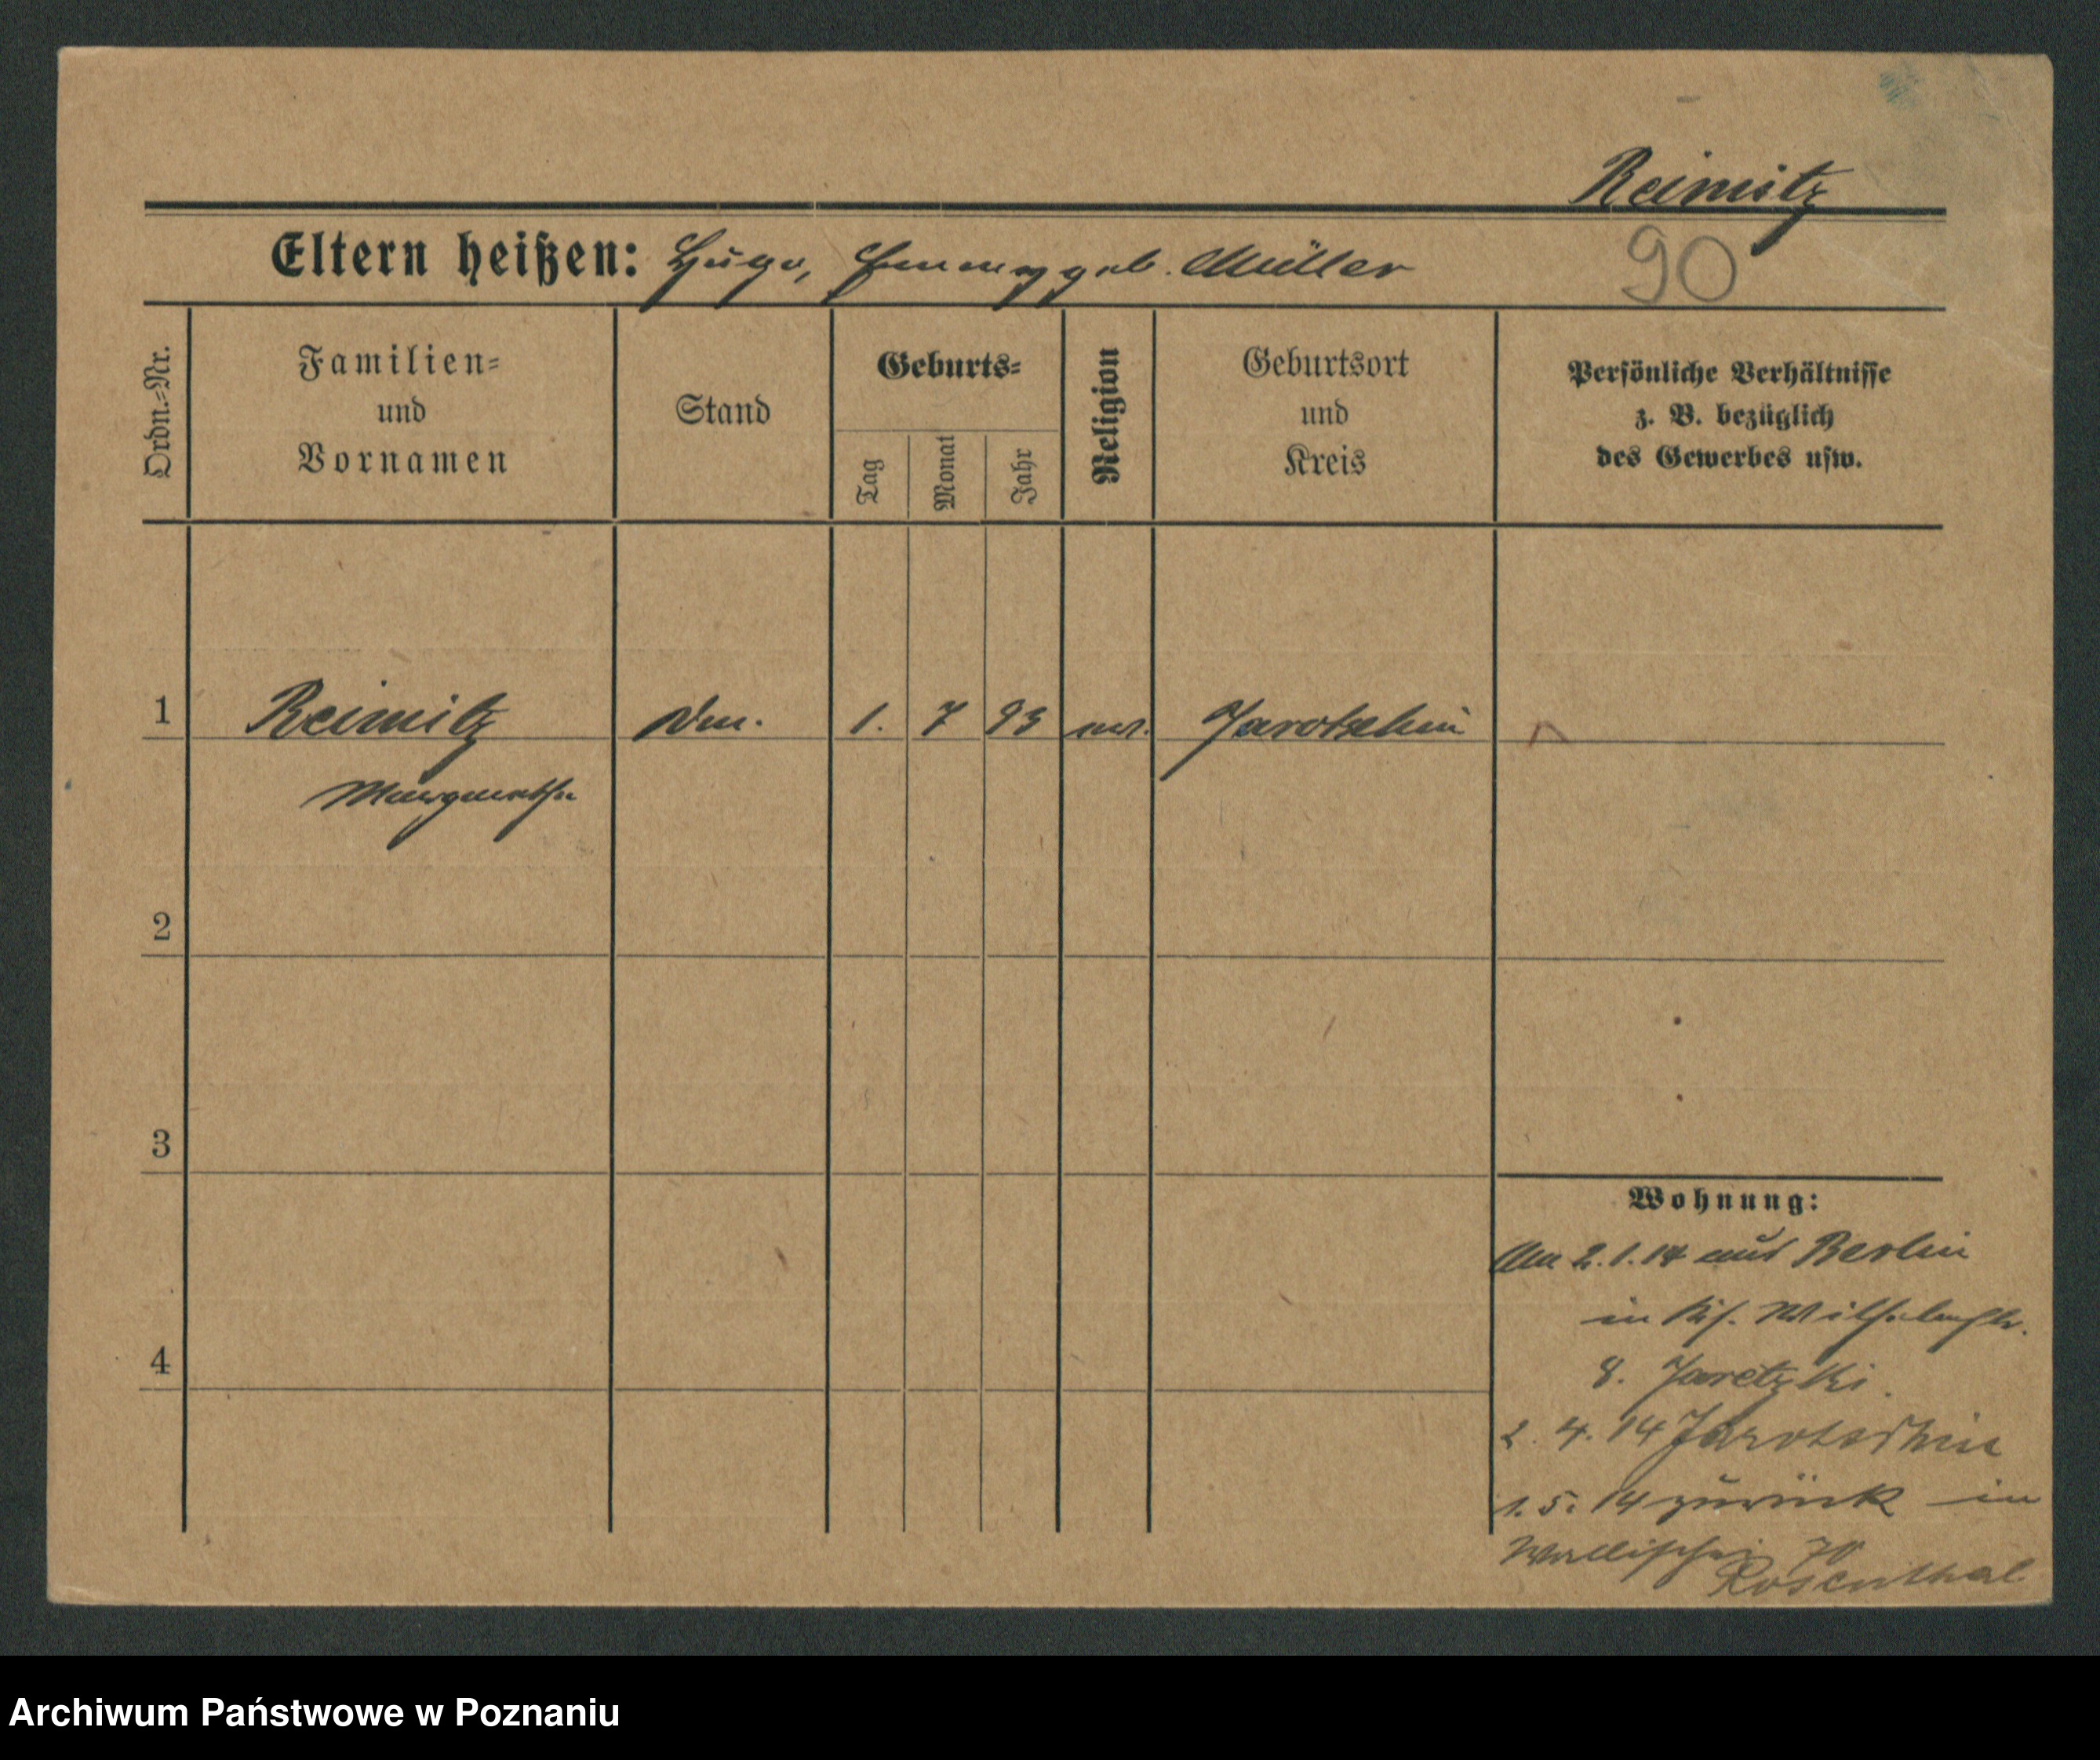 Reimitz
Eltern heißen: Hugo, geb. Müller
90
Ordn.-Nr.
Familien-
und
Vornamen
Stand
Geburts-
Tag
Monat
Jahr
Religion
Geburtsort
und
Kreis
Persönliche Verhältnisse
z. B. bezüglich
des Gewerbes usw.
1 Reimitz 1. 7 93 Jarotschin
Margarethe
2
3
4
Wohnung:
Am 2.1.14 aus Berlin
in Wilhelmstr.
8. Jaretzki.
2. 4. 14 Jarotschin
1. 5. 14 zurück in
Wallischei 70
Rosenthal
Archiwum Państwowe w Poznaniu